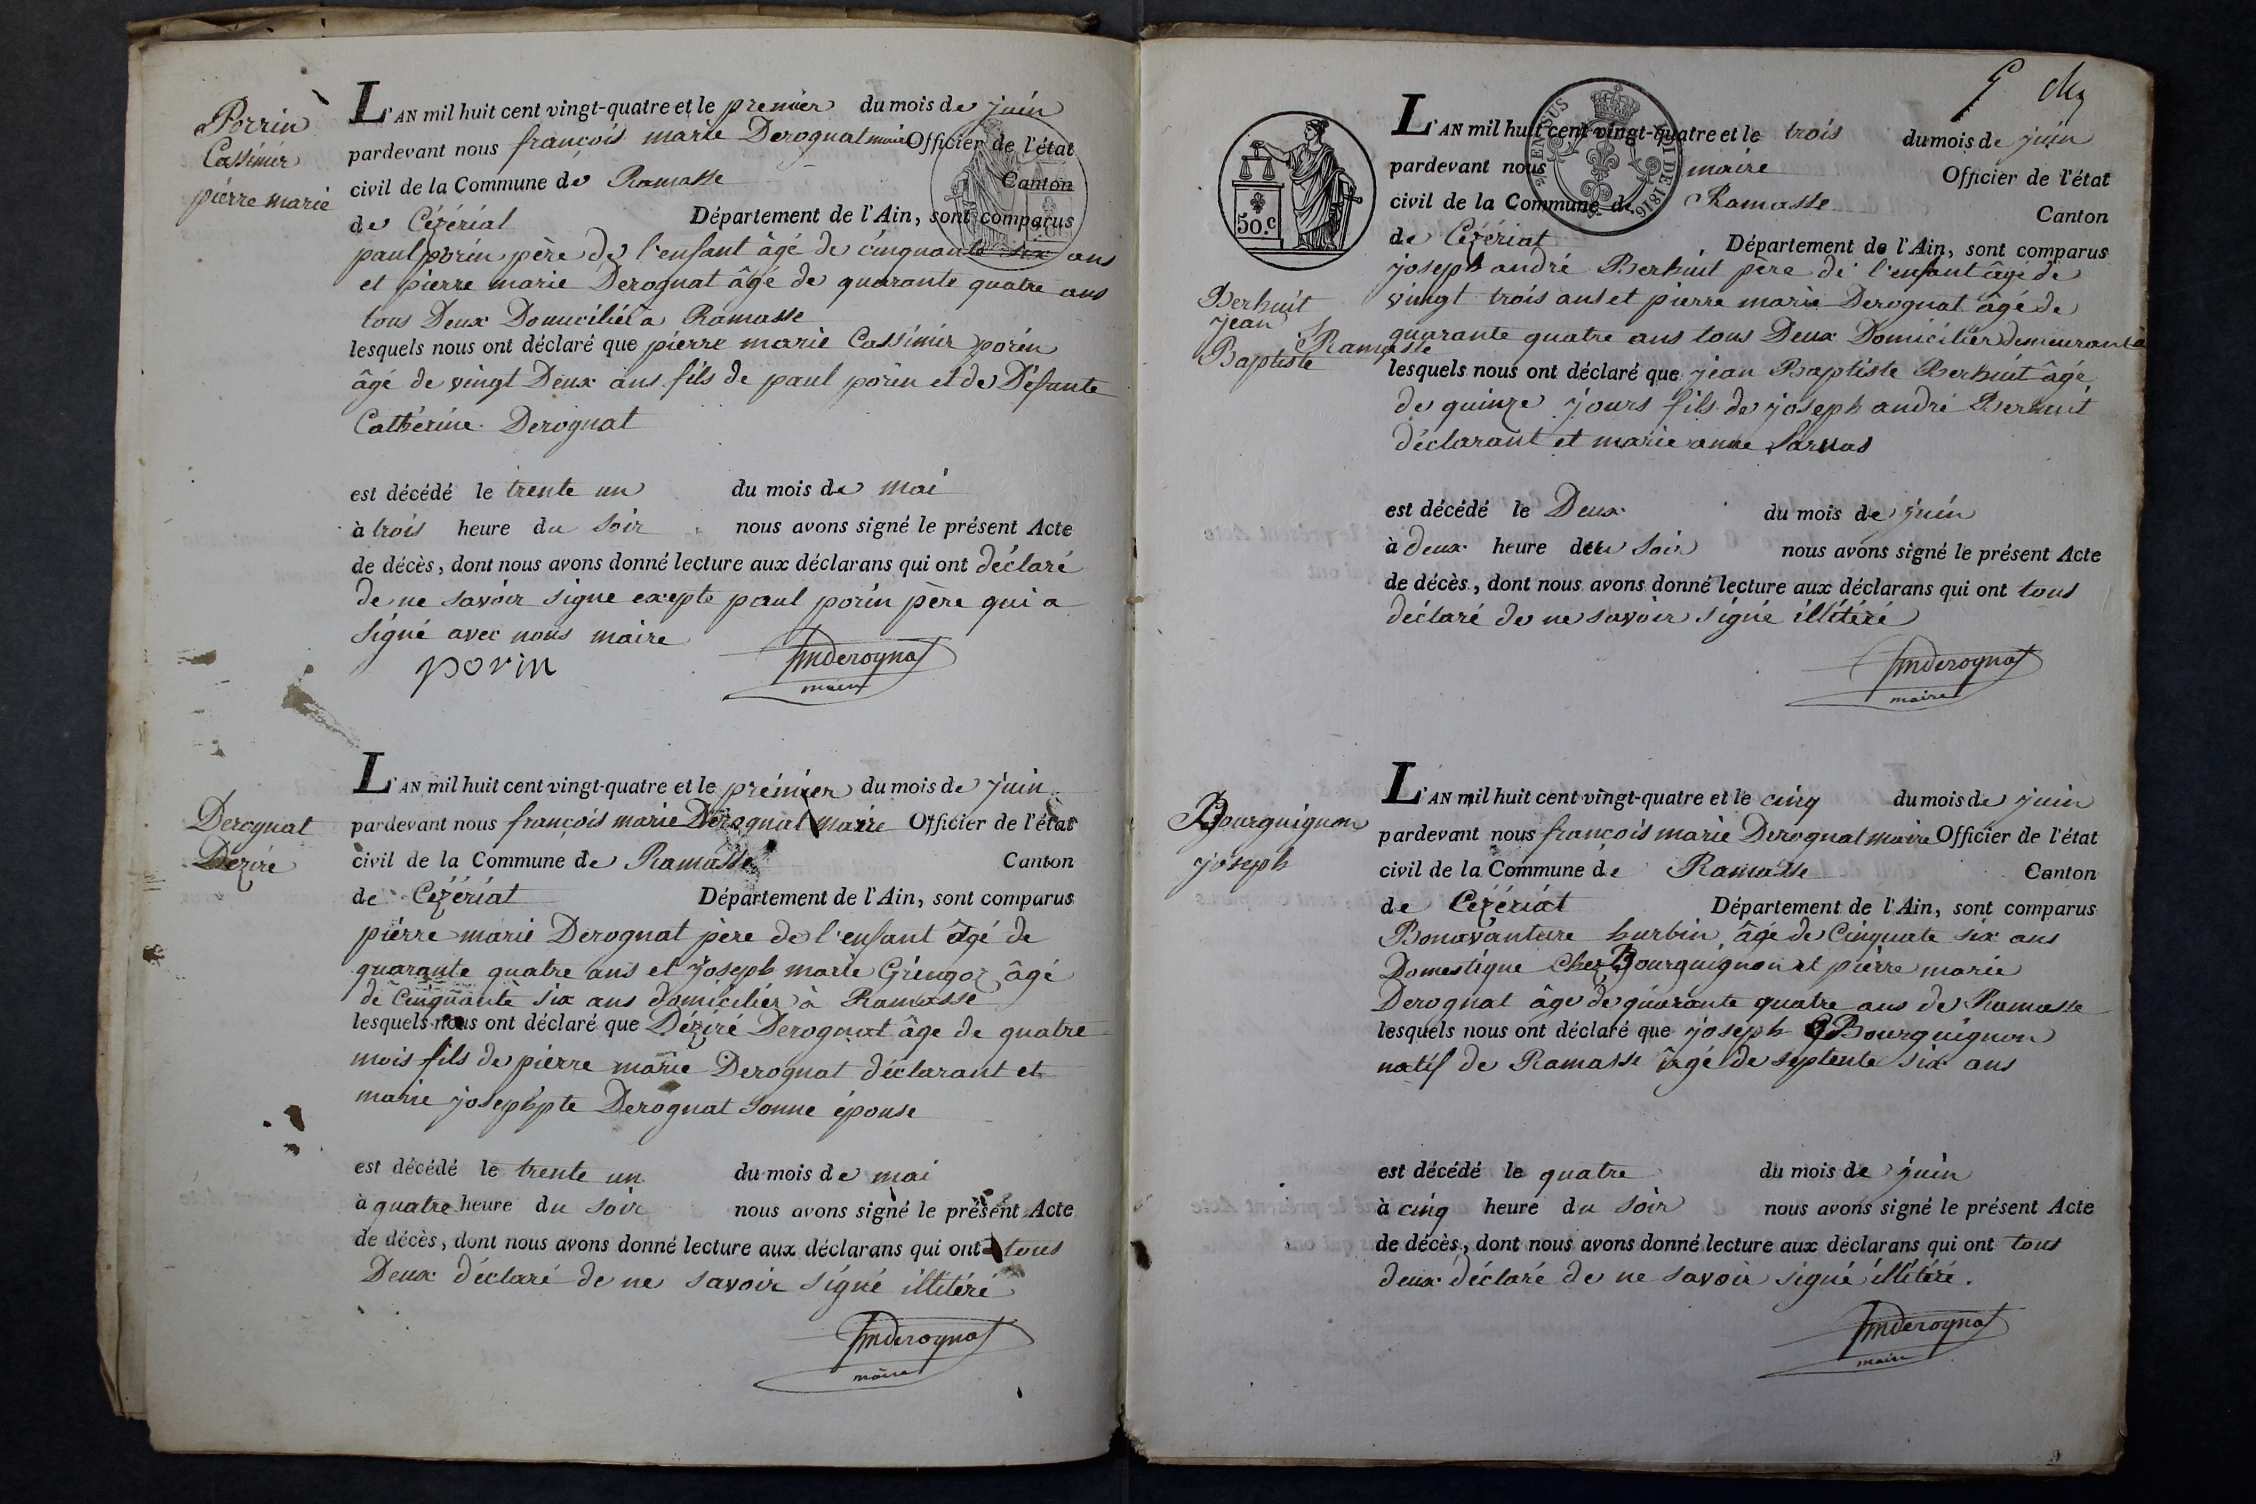 Porrin
Cassimir
pierre marie
L'AN mil huit cent vingt-quatre et le premier du mois de juin
pardevant nous françois marie Derognat maire Officier de l'état
civil de la Commune de Ramasse Canton
de Cézériat Département de l'Ain, sont comparus
paul porin père de l'enfant âgé de cinquante six ans
et pierre marie Derognat âgé de quarante quatre ans
tous Deux Domicilié a Ramasse
lesquels nous ont déclaré que pierre marie Cassimir porin
âgé de vingt Deux ans fils de paul porin et de Défunte
Cathérine Derognat
est décédé le trente un du mois de mai
à trois heure du soir nous avons signé le présent Acte
de décès, dont nous avons donné lecture aux déclarans qui ont déclaré
de ne savoir signe exepte paul porin père qui a
signé avec nous maire
porin fmderognat
maire
Derognat
Déziré
L'AN mil huit cent vingt-quatre et le prémier du mois de juin
pardevant nous françois marie Derognat maire Officier de l'état
civil de la Commune de Ramasse Canton
de Cézériat Département de l'Ain, sont comparus
pierre marie Derognat père de l'enfant âgé de
quarante quatre ans et joseph marie Gringoz âgé
de Cinquante six ans domicilier à Ramasse
lesquels nous ont déclaré que Déziré Derognat âge de quatre
mois fils de pierre marie Derognat déclarant et
marie josephpte Derognat sonne épouse
est décédé le trente un du mois de mai
à quatre heure du soir nous avons signé le présent Acte
de décès, dont nous avons donné lecture aux déclarans qui ont tous
Deux déclaré de ne savoir signé illitéré
fmderognat
maire
50.c
L'AN mil huit cent vingt-quatre et le trois du mois de juin
pardevant nous maire Officier de l'état
civil de la Commune de Ramasse
Canton
de Cézériat Département de l'Ain, sont comparus
joseph andré Berhuit père de l'enfant âgé de
vingt trois ans et pierre marie Derognat âgé de
quarante quatre ans tous Deux Domicilier demeurant à
Ramasse
Berhuit
jean
Baptiste
lesquels nous ont déclaré que jean Baptiste Berhuit âgé
de quinze jours fils de joseph andré Berhuit
déclarant et marie anne
est décédé le Deux du mois de juin
à deux heure du soir nous avons signé le présent Acte
de décès, dont nous avons donné lecture aux déclarans qui ont tous
déclaré de ne savoir signé illitéré
fmderognat
maire
Bourguignon
joseph
L'AN mil huit cent vingt-quatre et le cinq du mois de juin
pardevant nous françois marie Derognat maire Officier de l'état
civil de la Commune de Ramasse Canton
de Cézériat Département de l'Ain, sont comparus
Bonavanture hurbin âgé de Cinquate six ans
Domestique chez Bourguignon et pierre marie
Derognat âge de quarante quatre ans de Ramasse
lesquels nous ont déclaré que joseph Bourguignon
natif de Ramasse âgé de septente six ans
est décédé le quatre du mois de juin
à cinq heure du soir nous avons signé le présent Acte
de décès, dont nous avons donné lecture aux déclarans qui ont tous
deux déclaré de ne savoir signé illitéré.
fmderognat
maire